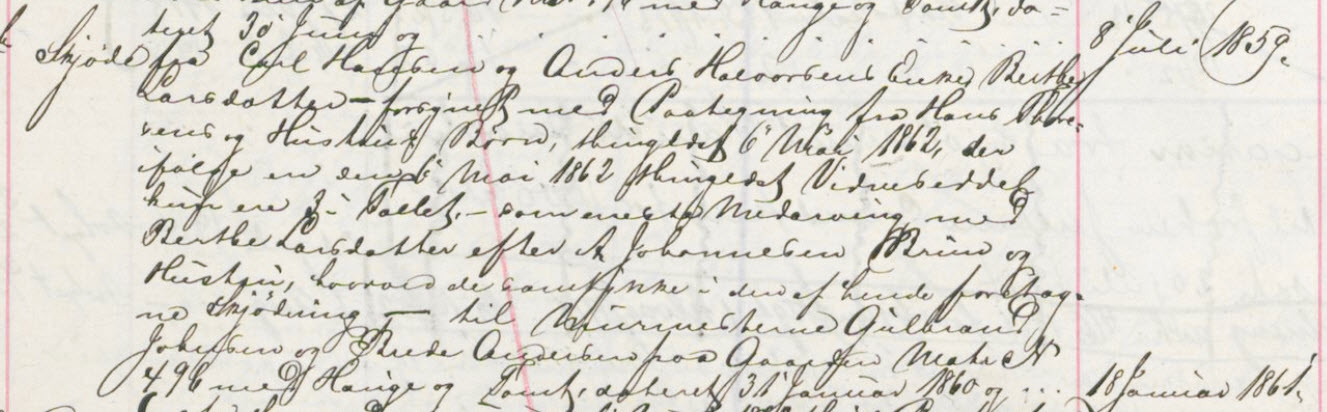 teret 30 Juni og 8 Juli 1859.
Skjøde fra Carl Hansen og Anders Halvorsens Enke Berthe
Larsdatter – forsynet med Paategning fra Hans
og Hustrus Børn, thinglæst 6 Mai 1862, der
ifølge en den 6 Mai 1862 thinglæst Vidneseddel
kun ere 3 i Tallet, – som eneste Medarving med
Berthe Larsdatter efter A Johannesen Bruun og
Hustru, hvorved de samtykke i den af hende foretag-
ne Skjødning – til Muurmesterne Gulbrand
Johnsen og Andersen paa Gaarden Matr. N
496 med Hauge og Tomt, dateret 31 Januar 1860 og ... 18 Januar 1861.